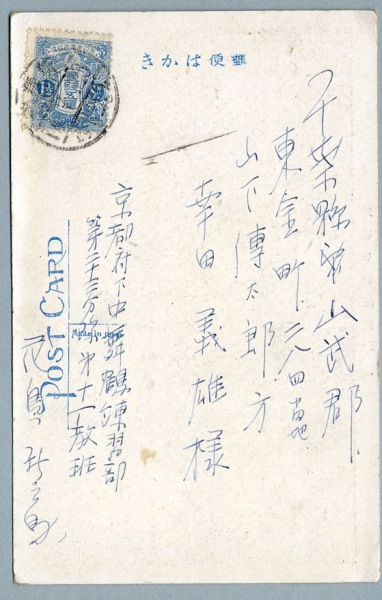 郵便はかき
千葉縣山武郡
東金町二八四番地
山下傳太郎方
幸田義雄様
京都府下中舞鶴練習部
第二十三分隊第十一教班
POST CARD